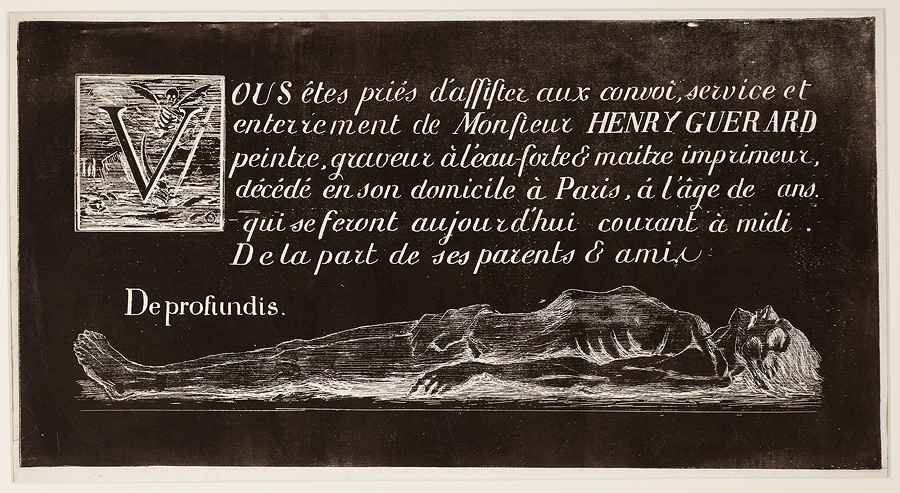 VOUS êtes priés d'aſſiſter aux convoi, service et
enterrement de Monſieur HENRY GUERARD
peintre, graveur à l'eau-forte & maitre imprimeur,
décédé en son domicile à Paris, á l'âge de ans.
qui se feront aujourd'hui courant à midi .
De la part de ses parents & amis
De profundis.